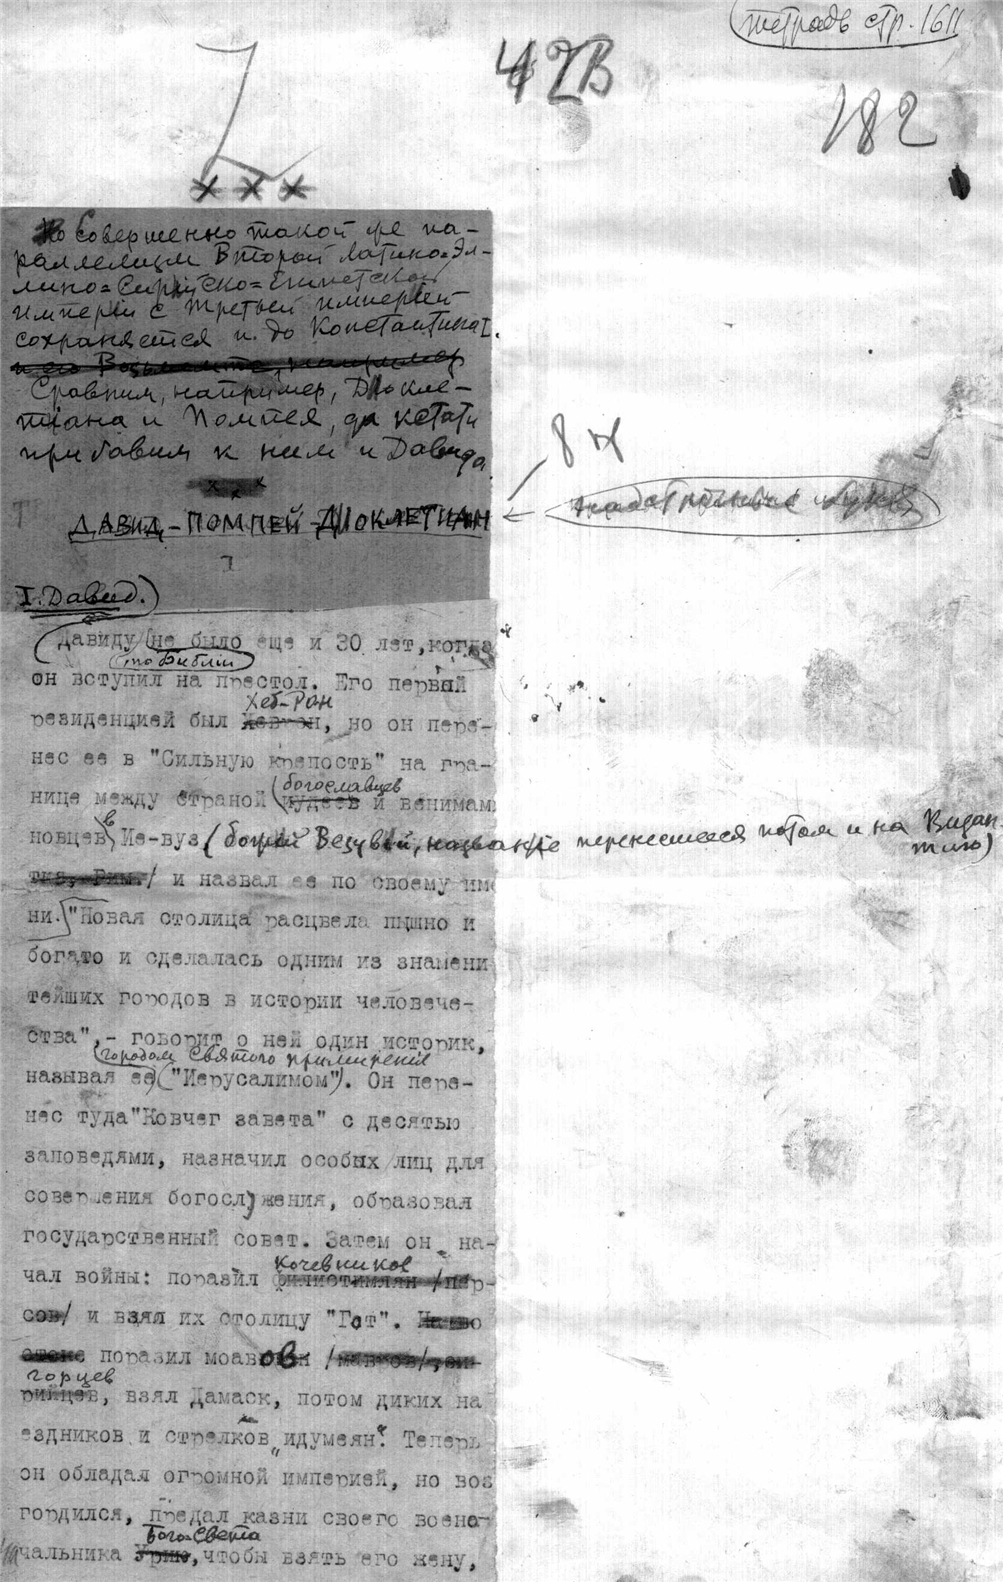 тетрадь стр. 1611
42В
182
× × ×
Совершенно такой же па-
раллелизм Второй Латино=Эл-
лино=Сирийско=Египетской
империи с третьей империей
сохраняется и до Константина I.
и его Возьмите, например
Сравним, например, Диокле-
тиана и Помпея, да кстати
прибавим к ним и Давида
× × ×
8 н
ДАВИД-ПОМПЕЙ-ДИОКЛЕТИАН
I. Давид.)
Давиду не было еще и 30 лет, когда
по Библии
он вступил на престол. Его первый
Хеб-Рон
резиденцией был Хеврон, но он пере-
нес ее в "Сильную крепость" на гра-
богославцев
нице между страной иудеев и вениамиı
новцев, в Ие-вуз (божий Везувий, название перенесшееся потом и на Визан-
тию)
Рим./ и назвал ее по своему име
ни. "Новая столица расцвела пышно и
богато и сделалась одним из знамени
тейших городов в истории человече-
ства",- говорит о ней один историк,
городом Святого примирения
называя ее ("Иерусалимом"). Он пере-
нес туда "Ковчег завета" с десятью
заповедями, назначил особых лиц для
совершения богослужения, образовая
государственный совет. Затем он на-
кочевников
чал войны: поразил филистимлян /пер-
сов/ и взял их столицу "Гот". На во
стоке поразил моавов /мавров/, си-
горцев
рийцев, взял Дамаск, потом диких на
ездников и стрелков "идумеян". Теперь
он обладал огромной империей, но воз
гордился, предал казни своего воена-
Бого-Света
чальника Урию, чтобы взять его жену,